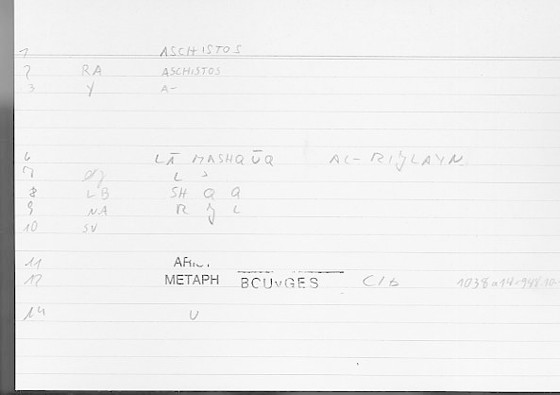 1 ASCHISTOS
2 RA ASCHISTOS
3 Y A-
6 LĀ MASHQŪQ AL-RIǦLAYN
7 L ʾ
8 LB SH Q Q
9 NA R Ǧ L
10 SV
11
12 METAPH BOUYGES C/b 1038a14
14 U